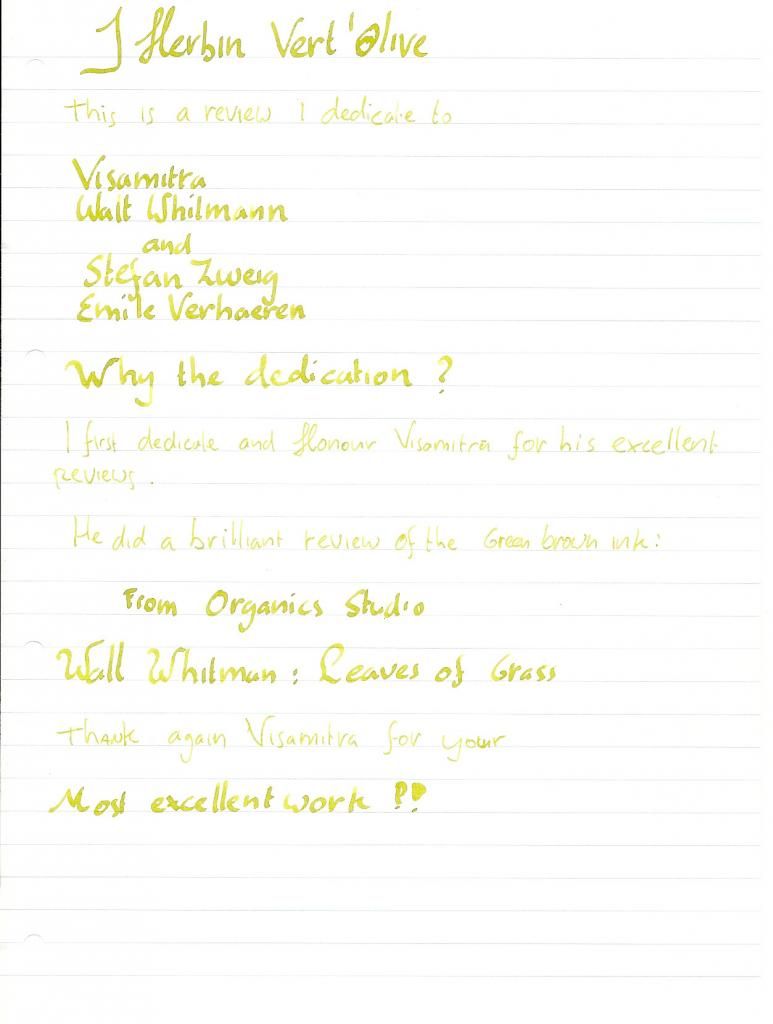 J Herbin Vert'Olive
This is a review I dedicate to
Visamitra
Walt Whitmann
and
Stefan Zweig
Emile Verhaeren
Why the dedication ?
I first dedicate and Honour Visamitra for his excellent
reviews.
He did a brilliant review of the Green brown ink:
From Organics Studio
Walt Whitman : Leaves of Grass
Thank again Visamitra for your
Most excellent work !!